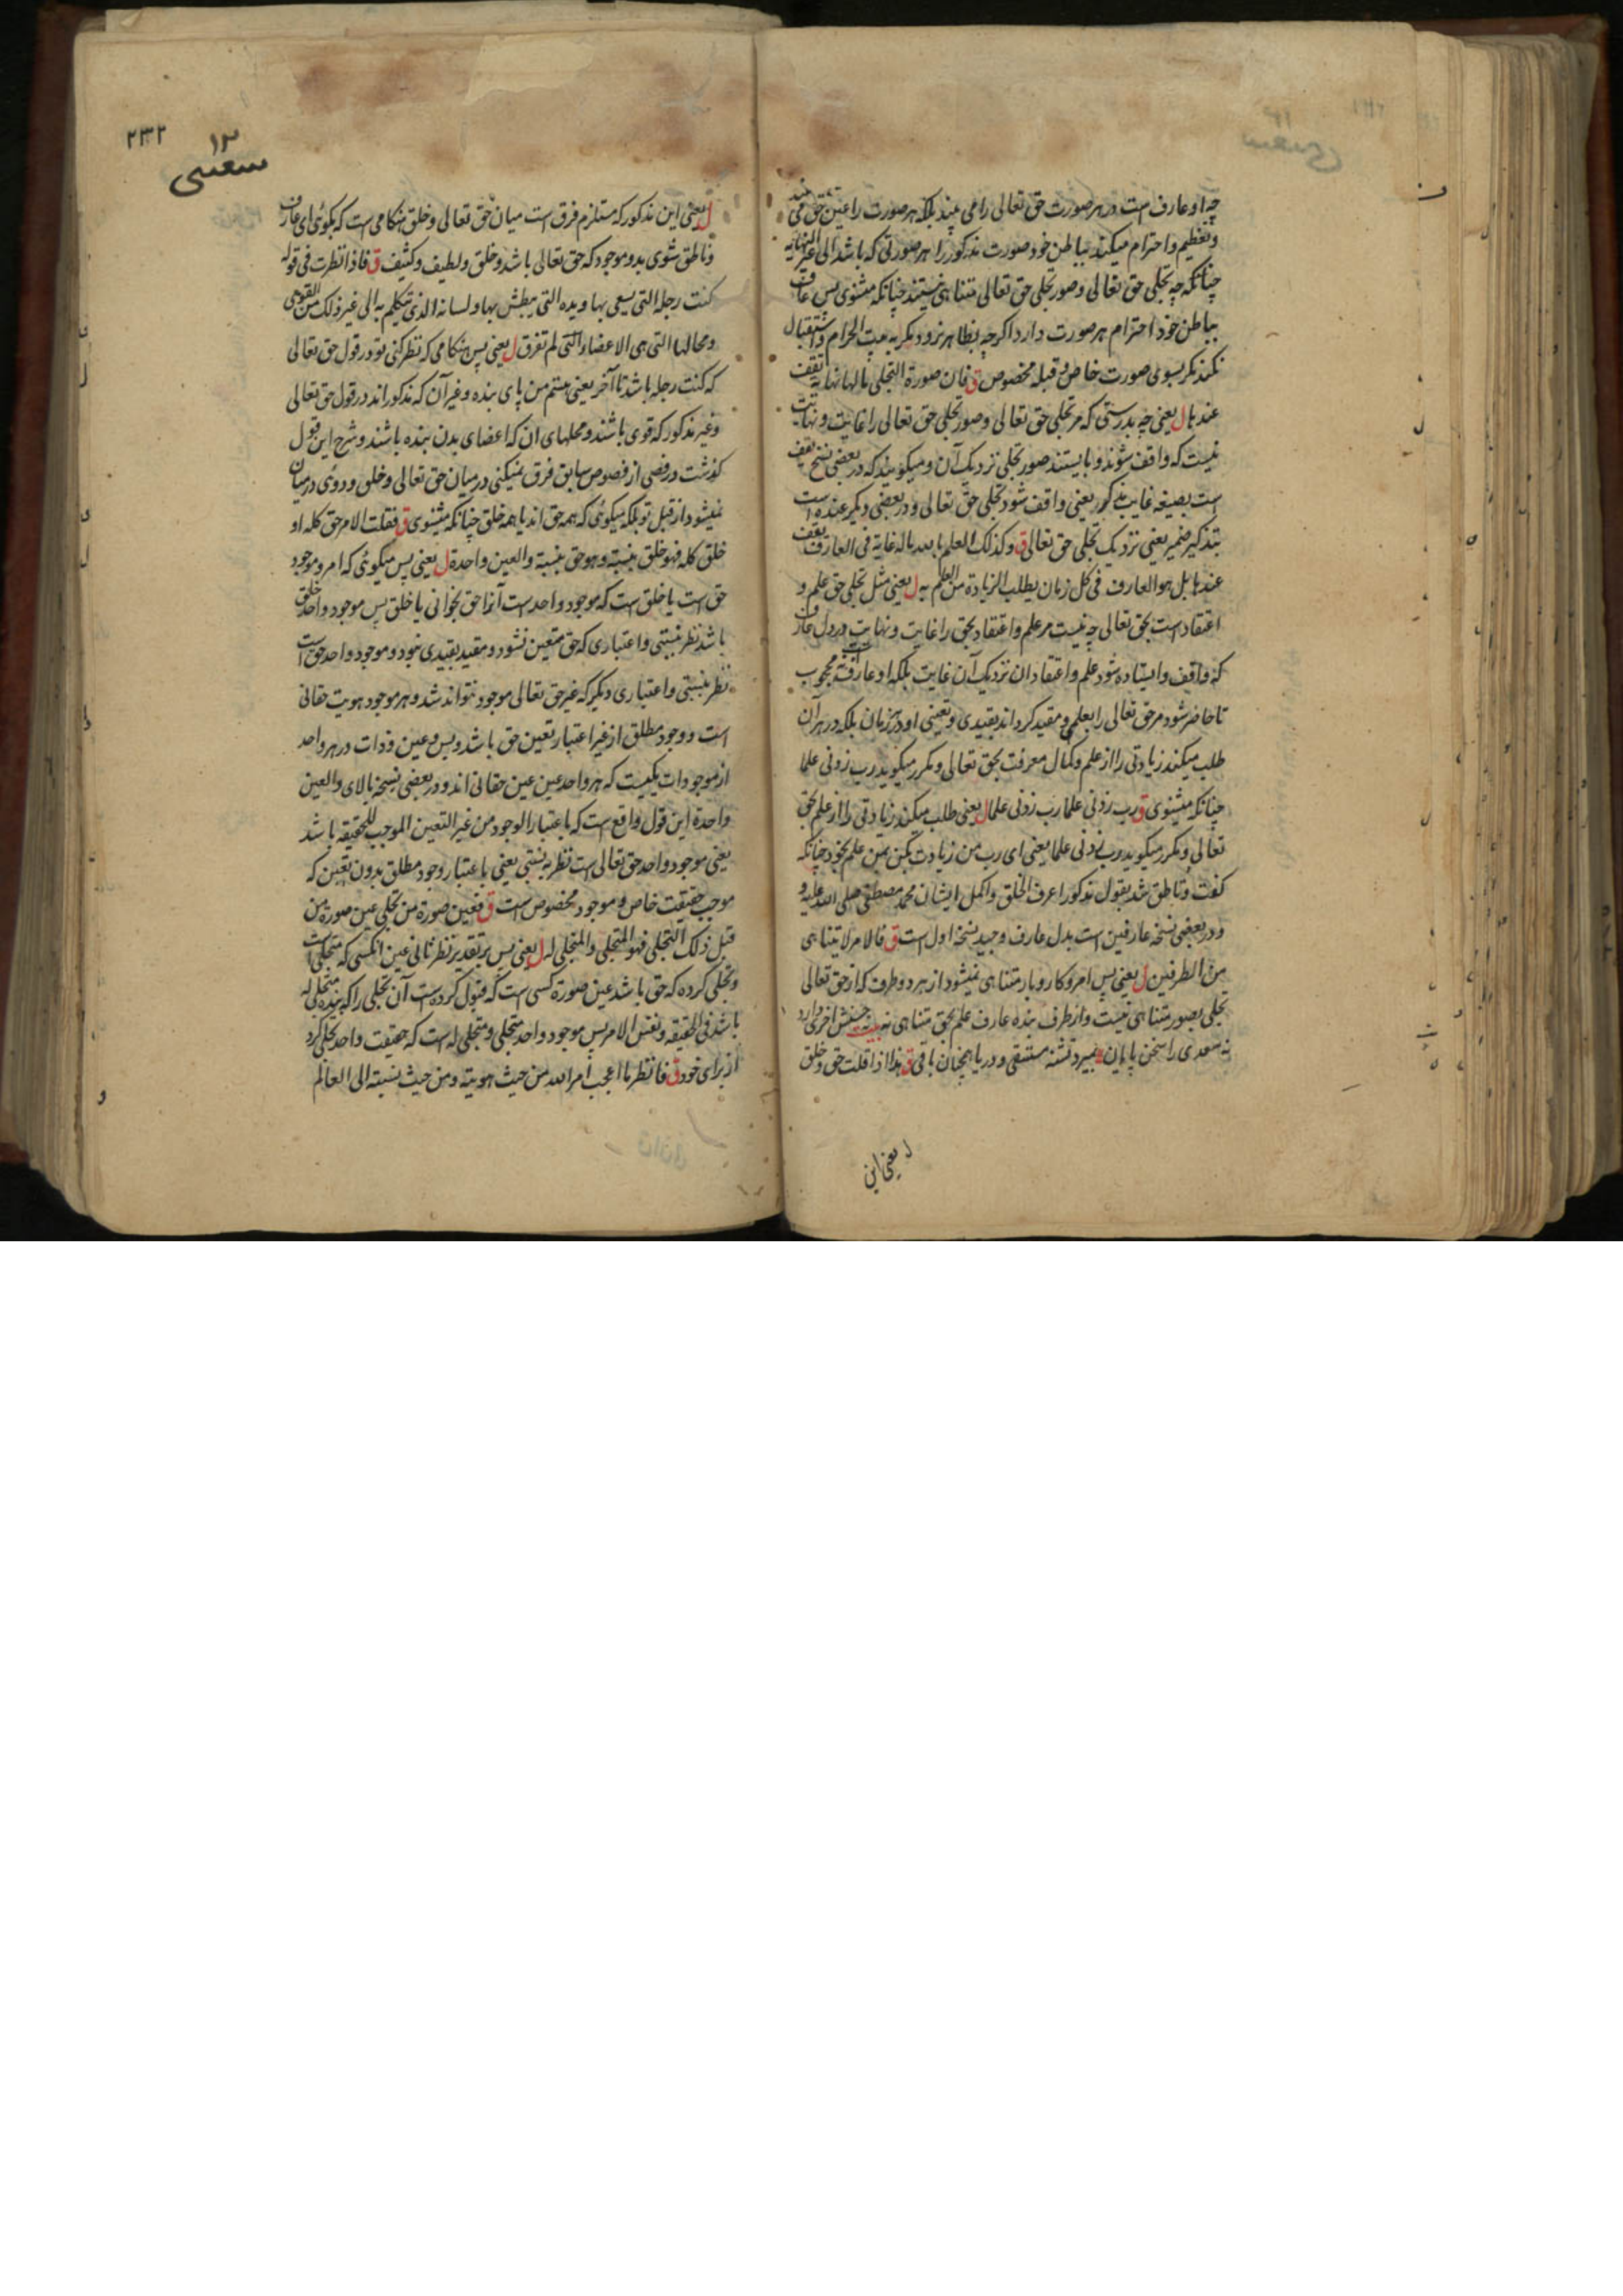 چه او عارف است در هر صورت حق تعالی را می بیند بلکه هر صورت را عین حق می بیند
و تعظیم و احترام میکند بباطن خود صورت مذکور را هر صورتی که باشد الی غیر النهایه
چنانکه چه تجلی حق تعالی و صور تجلی حق تعالی متناهی نیستند چنانکه میشنوی پس عارف
بباطن خود احترام هر صورت دارد اگرچه بظاهر نرود مگر به بیت الحرام و استقبال
نکند مگر بسوی صورت خاص و قبله مخصوص ق فان صورة التجلی ما لها نهایة تقف
عندها ل یعنی چه بدرستی که مر تجلی حق تعالی و صور تجلی حق تعالی را غایت و نهایت
نیست که واقف شوند و بایستند صور تجلی نزدیک آن و میگویند که در بعضی نسخ یقف
است بصیغه غایب مذکر یعنی واقف شود تجلی حق تعالی و در بعضی دیگر عنده است
بتذکیر ضمیر یعنی نزدیک تجلی حق تعالی ق و کذلک العلم بالله ما له غایة فی العارف یقف
عندها بل هو العارف فی کل زمان یطلب الزیادة من العلم به ل یعنی مثل تجلی حق علم و
اعتقاد است بحق تعالی چه نیست مر علم و اعتقاد بحق را غایت و نهایت در دل عارف
که واقف و ایستاده شود علم و اعتقاد ان نزدیک آن غایت بلکه او عارف است محجوب
تا حاضر شود مر حق تعالی را بعلمی و مقید گرداند بقیدی و تعینی او در هر زمان بلکه در هر آن
طلب میکند زیادتی را از علم و کمال معرفت بحق تعالی و مکرر میگوید رب زدنی علما
چنانکه میشنوی ق رب زدنی علما رب زدنی علما ل یعنی طلب میکند زیادتی را از علم بحق
تعالی و مکرر میگوید رب زدنی علما یعنی ای رب من زیادت بکن بمن علم بخود چنانکه
گفت و ناطق شد بقول مذکور اعرف الخلق و اکمل ایشان محمد مصطفی صلی الله علیه و
و در بعضی نسخه عارفین است بدل عارف و جید نسخه اول است ق فالامر لا یتناهی
من الطرفین ل یعنی پس امر و کار و بار متناهی نمیشود از هر دو طرف که از حق تعالی
تجلی بصور متناهی نیست و از طرف بنده عارف علم بحق متناهی نه بیت نه حسنش آخری دارد
نه سعدی را سخن پایان بمیرد تشنه مستسقی و دریا همچنان باقی ق هذا اذا قلت حق و خلق
ل یعنی این
۲۳۲
۱۲
ل یعنی این مذکور که مستلزم فرق است میان حق تعالی و خلق هنگامی است که بگوئی ای عارف
و ناطق شوی بدو موجود که حق تعالی باشد و خلق و لطیف و کثیف ق فاذا نظرت فی قوله
کنت رجله التی یسعی بها و یده التی یبطش بها و لسانه الذی یتکلم به الی غیر ذلک من القوی
و محالها التی هی الاعضاء التی لم تفرق ل یعنی پس هنگامی که نظر کنی تو در قول حق تعالی
که کنت رجله باشد تا آخر یعنی هستم من پای بنده و غیر آن که مذکور اند در قول حق تعالی
و غیر مذکور که قوی باشند و محلهای ان که اعضای بدن بنده باشند و شرح این قول
گذشت در فصی از فصوص سابق فرق نمیکنی در میان حق تعالی و خلق و دوئی در میان
نمیشود از قبل تو بلکه میگوئی که همه حق اند یا همه خلق چنانکه میشنوی ق فقلت الامر حق کله او
خلق کله فهو خلق بنسبة و هو حق بنسبة و العین واحدة ل یعنی پس میگوئی که امر و موجود
حق است یا خلق است که موجود واحد است آنرا حق بخوانی یا خلق پس موجود واحد خلق
باشد نظر بنسبتی و اعتباری که حق متعین نشود و مقید بقیدی نبود و موجود واحد حق است
نظر بنسبتی و اعتباری دیگر که غیر حق تعالی موجود نتواند شد و هر موجود هویت حقانی
است و وجود مطلق از غیر اعتبار تعین حق باشد و بس و عین و ذات در هر واحد
از موجودات یکیست که هر واحد عین عین حقانی اند و در بعضی نسخه بالای و العین
واحدة این قول واقع است که باعتبار الوجود من غیر التعین الموجب للحقیقه باشد
یعنی موجود واحد حق تعالی است نظر به نسبتی یعنی باعتبار وجود مطلق بدون تعین که
موجب حقیقت خاص و موجود مخصوص است ق فعین صورة من تجلی عین صورة من
قبل ذلک التجلی فهو المتجلی و المتجلی له ل یعنی پس بر تقدیر نظر ثانی عین آنکسی که متجلی است
و تجلی کرده که حق باشد عین صورة کسی است که قبول کرده است آن تجلی را که بنده متجلی له
باشد فی الحقیقه و نفس الامر پس موجود واحد متجلی و متجلی له است که حقیقت واحد تجلی کرد
از برای خود ق فانظر ما اعجب امر الله من حیث هویته و من حیث نسبته الی العالم